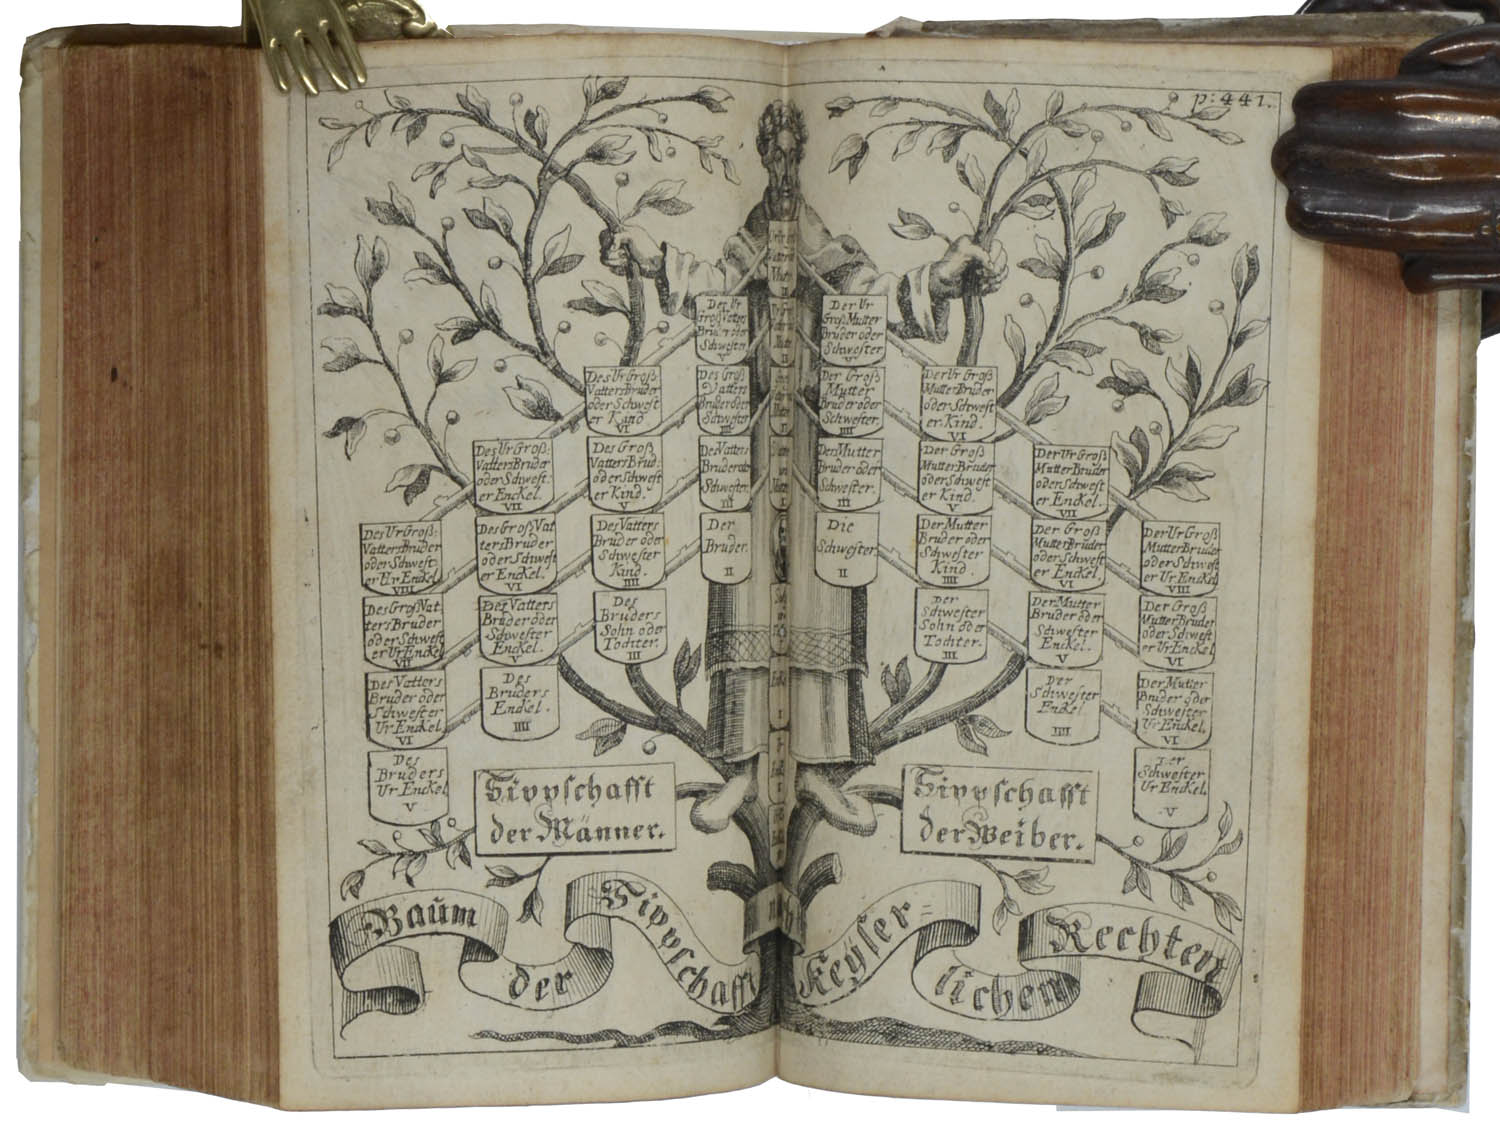 p: 441.
Des Ur
Groß Vatters
Bruder oder
Schwester
V
Der Ur
Groß Mutter
Bruder oder
Schwester
V
Des Ur Groß:
Vatters Bruder
oder Schwest
er Kind
VI
Des Groß
Vatters
Bruder oder
Schwester
Der Groß
Mutter
Bruder oder
Schwester
IIII
Der Ur Groß
Mutter Bruder
oder Schwest
er Kind.
VI
Des Ur Groß:
Vatters Bruder
oder Schwest
er Enckel.
VII
Des Groß
Vatters Brud:
oder Schwest
er Kind.
V
Des Vatters
Bruder oder
Schwester.
III
Der Mutter
Bruder oder
Schwester.
III
Der Groß
Mutter Bruder
oder Schwest
er Kind.
V
Der Ur Groß
Mutter Bruder
oder Schwest
er Enckel.
VII
Des Ur Groß:
Vatters Bruder
oder Schwest
er Ur Enckel
VIII
Des Groß Vat
ters Bruder
oder Schwest
er Enckel.
VI
Des Vatters
Bruder oder
Schwester
Kind.
IIII
Der
Bruder.
II
Die
Schwester
II
Der Mutter
Bruder oder
Schwester
Kind.
IIII
Der Groß
Mutter Bruder
oder Schwest
er Enckel.
VI
Der Ur Groß
Mutter Bruder
oder Schwest
er Ur Enckel
VIII
Des Groß Vat.
ters Bruder
oder Schwest
er Ur Enckel
VII
Des Vatters
Bruder oder
Schwester
Enckel.
V
Des
Bruders
Sohn oder
Tochter.
III
Der
Schwester
Sohn oder
Tochter.
III
Der Mutter
Bruder oder
Schwester
Enckel.
V
Der Groß
Mutter Bruder
oder Schwest
er Ur Enckel
Des Vatters
Bruder oder
Schwester
Ur Enckel.
VI
Des
Bruders
Enckel.
IIII
Der
Schwester
Enckel
IIII
Der Mutter
Bruder oder
Schwester
Ur Enckel.
VI
Des
Bruders
Ur Enckel
V
Der
Schwester
Ur Enckel.
V
Sippschafft
der Männer.
Sippschafft
der Weiber.
Baum der Sippschafft nach Keyser=
lichen Rechten